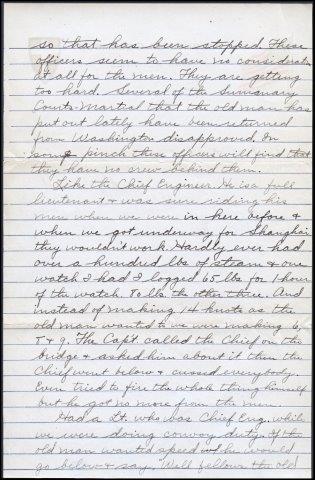 so that has been stopped. These
officers seem to have no consideration
at all for the men. They are getting
too hard. Several of the Summary
Courts-Martial that the old man has
put out lately have been returned
from Washington disapproved. In
some pinch these officers will find that
they have no crew behind them.
Like the Chief Engineer. He is a full
lieutenant & was sure riding his
men when we were in here before &
when we got underway for Shanghai
they wouldn't work. Hardly ever had
over a hundred lbs of steam & one
watch I had I logged 65 lbs for 1 hour
of the watch. 80 lbs the other three. And
instead of making 14 knots as the
old man wanted to we were making 6,
8 & 9. The Capt. called the Chief on the
bridge & asked him about it then the
Chief went below & cussed everybody.
Even tried to fire the whole thing himself
but he got no more from the men.
Had a Lt. who was Chief Eng. while
we were doing convoy duty. If the
old man wanted speed he would
go below & say, Well fellows the old